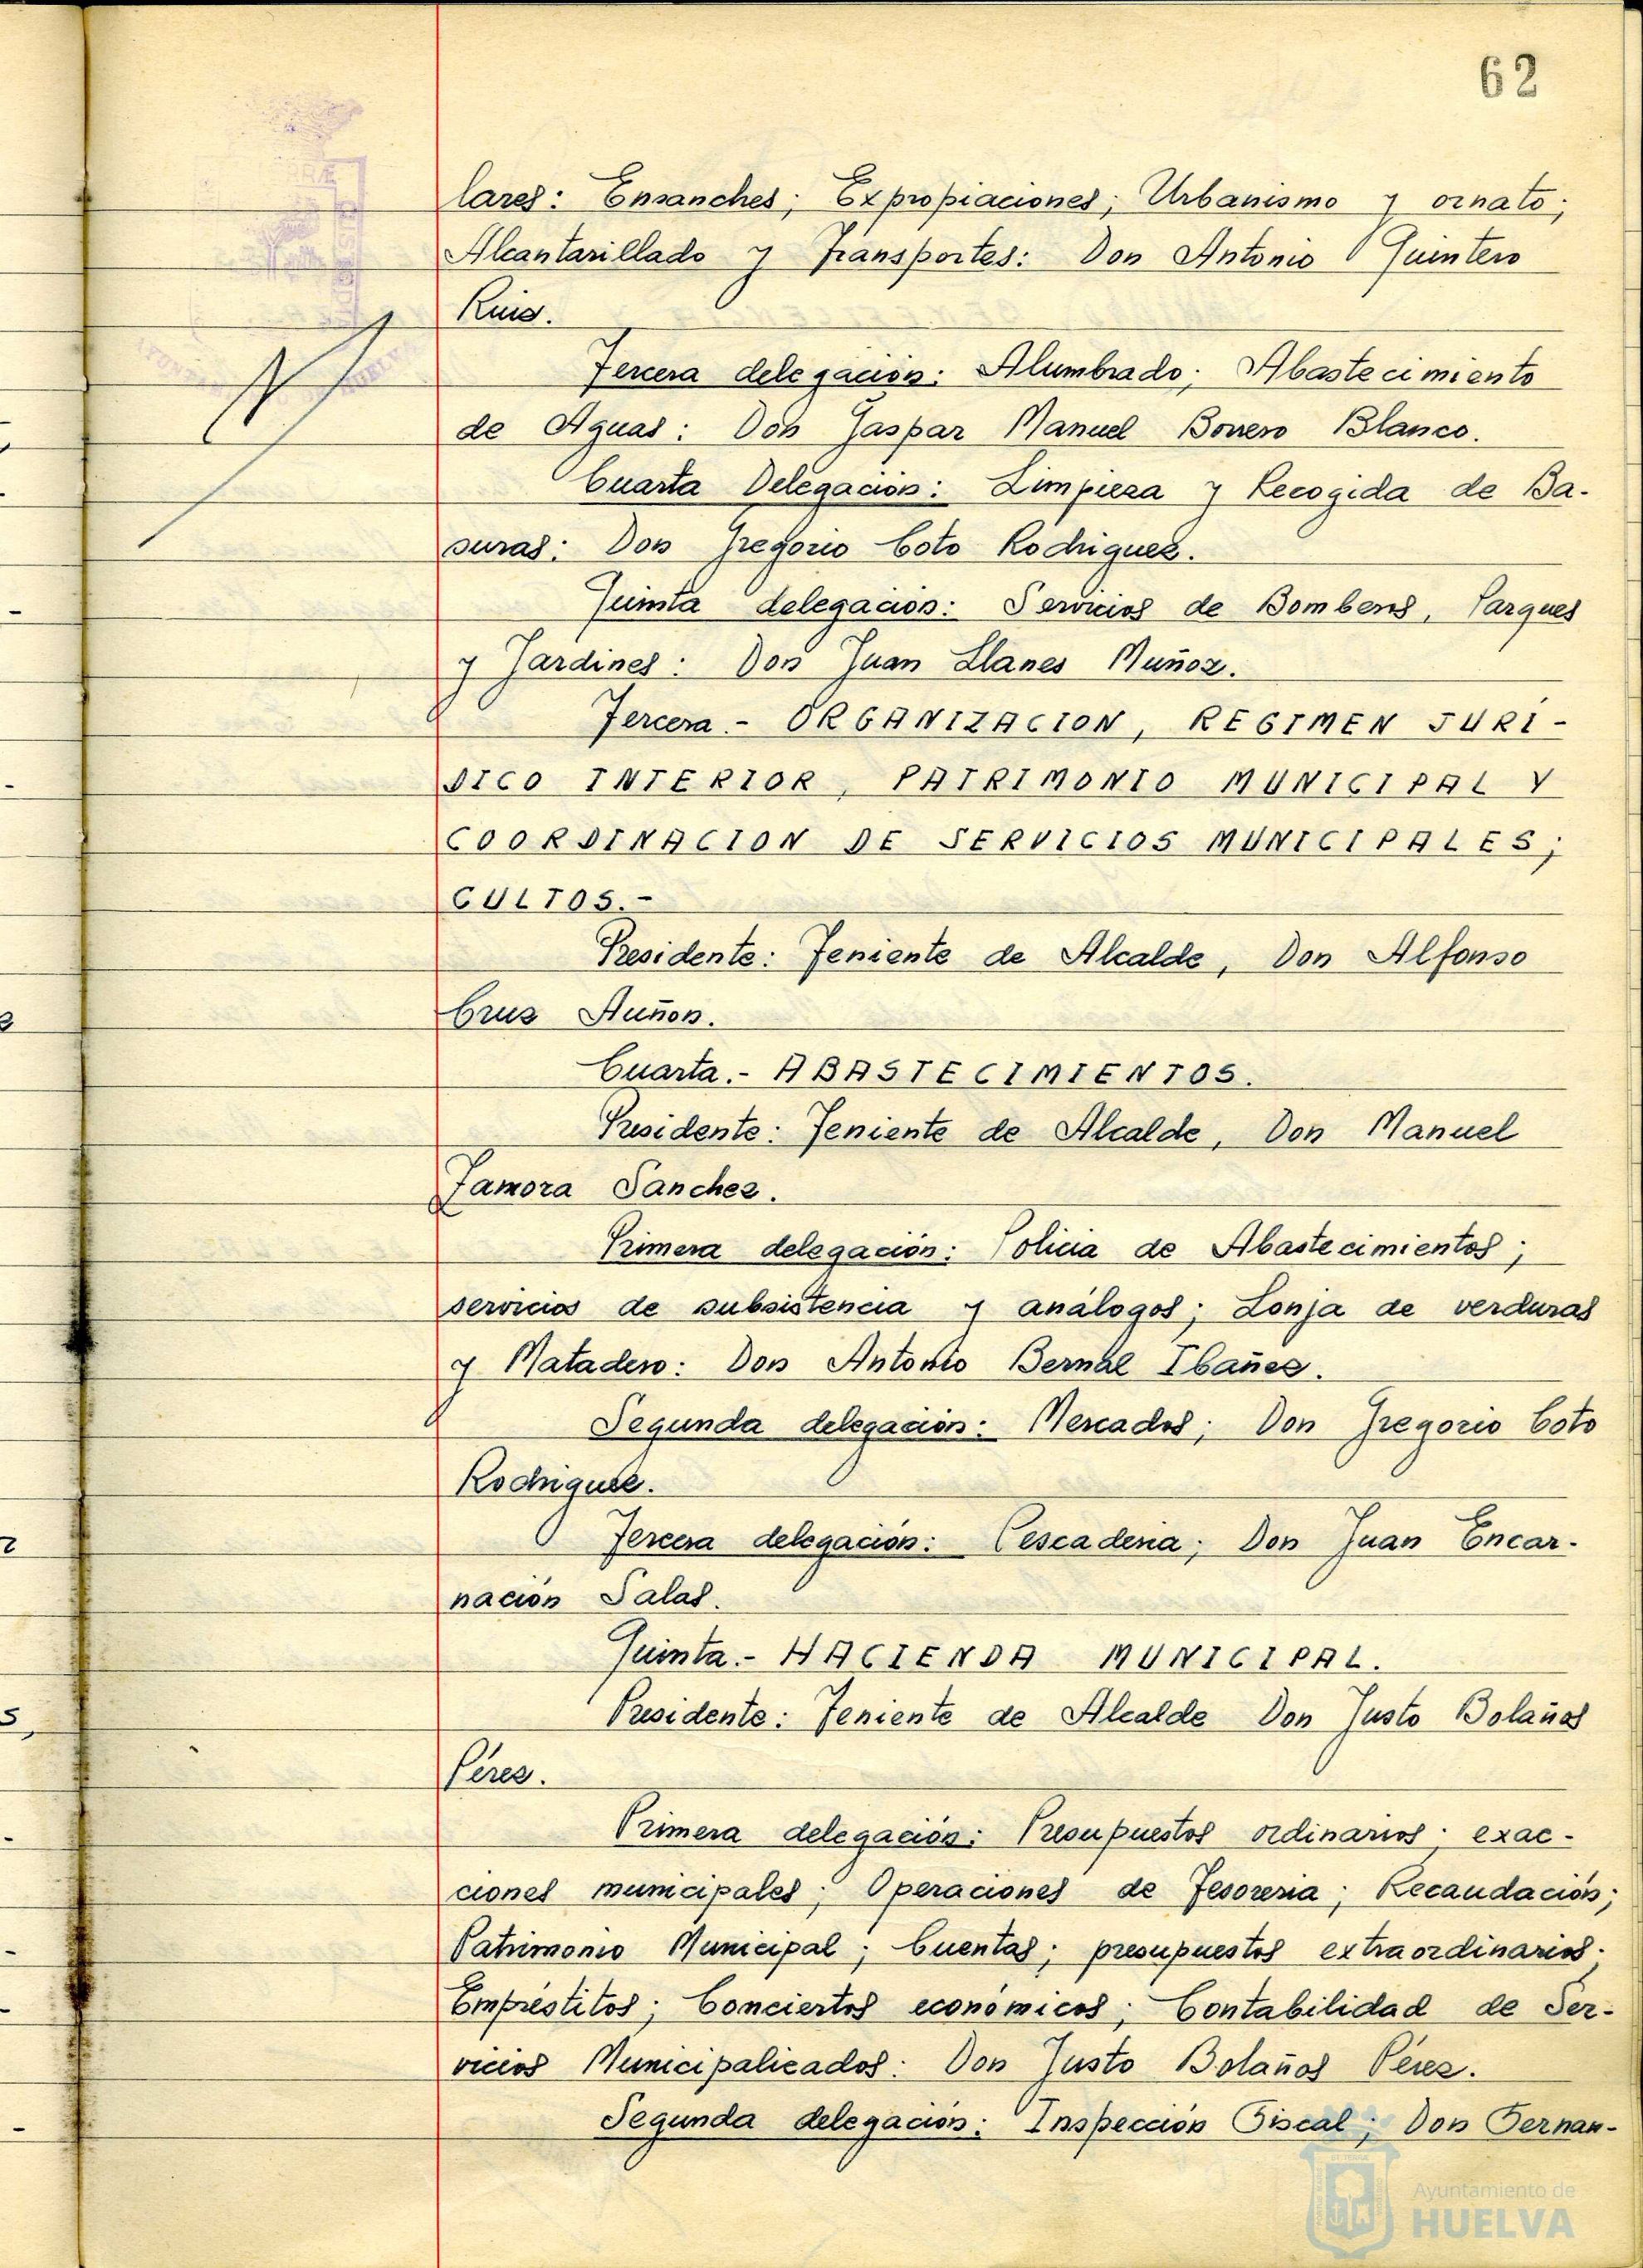 62
lares: Ensanches; Expropiaciones; Urbanismo y ornato;
Alcantarillado y Transportes: Don Antonio Quintero
Ruiz.
Tercera delegación: Alumbrado; Abastecimiento
de Aguas: Don Gaspar Manuel Borrero Blanco.
Cuarta Delegación: Limpieza y Recogida de Ba-
suras: Don Gregorio Coto Rodriguez.
Quinta delegación: Servicios de Bomberos, Parques
y Jardines: Don Juan Llanes Muñoz.
Tercera.- ORGANIZACION, REGIMEN JURI-
DICO INTERIOR, PATRIMONIO MUNICIPAL Y
COORDINACION DE SERVICIOS MUNICIPALES;
CULTOS.-
Presidente: Teniente de Alcalde, Don Alfonso
Cruz Auñon.
Cuarta.- ABASTECIMIENTOS.
Presidente: Teniente de Alcalde, Don Manuel
Zamora Sanchez.
Primera delegación: Policia de Abastecimientos;
servicios de subsistencia y análogos; Lonja de verduras
y Matadero: Don Antonio Bernal Ibañez.
Segunda delegación: Mercados; Don Gregorio Coto
Rodriguez.
Tercera delegación: Pescaderia; Don Juan Encar-
nación Salas.
Quinta.- HACIENDA MUNICIPAL.
Presidente: Teniente de Alcalde Don Justo Bolaños
Pérez.
Primera delegación: Presupuestos ordinarios; exac-
ciones municipales; Operaciones de Tesoreria; Recaudación;
Patrimonio Municipal; Cuentas; presupuestos extraordinarios.
Empréstitos; Conciertos económicos; Contabilidad de Ser-
vicios Municipalizados: Don Justo Bolaños Pérez.
Segunda delegación: Inspección Fiscal; Don Fernan-
Ayuntamiento de
HUELVA